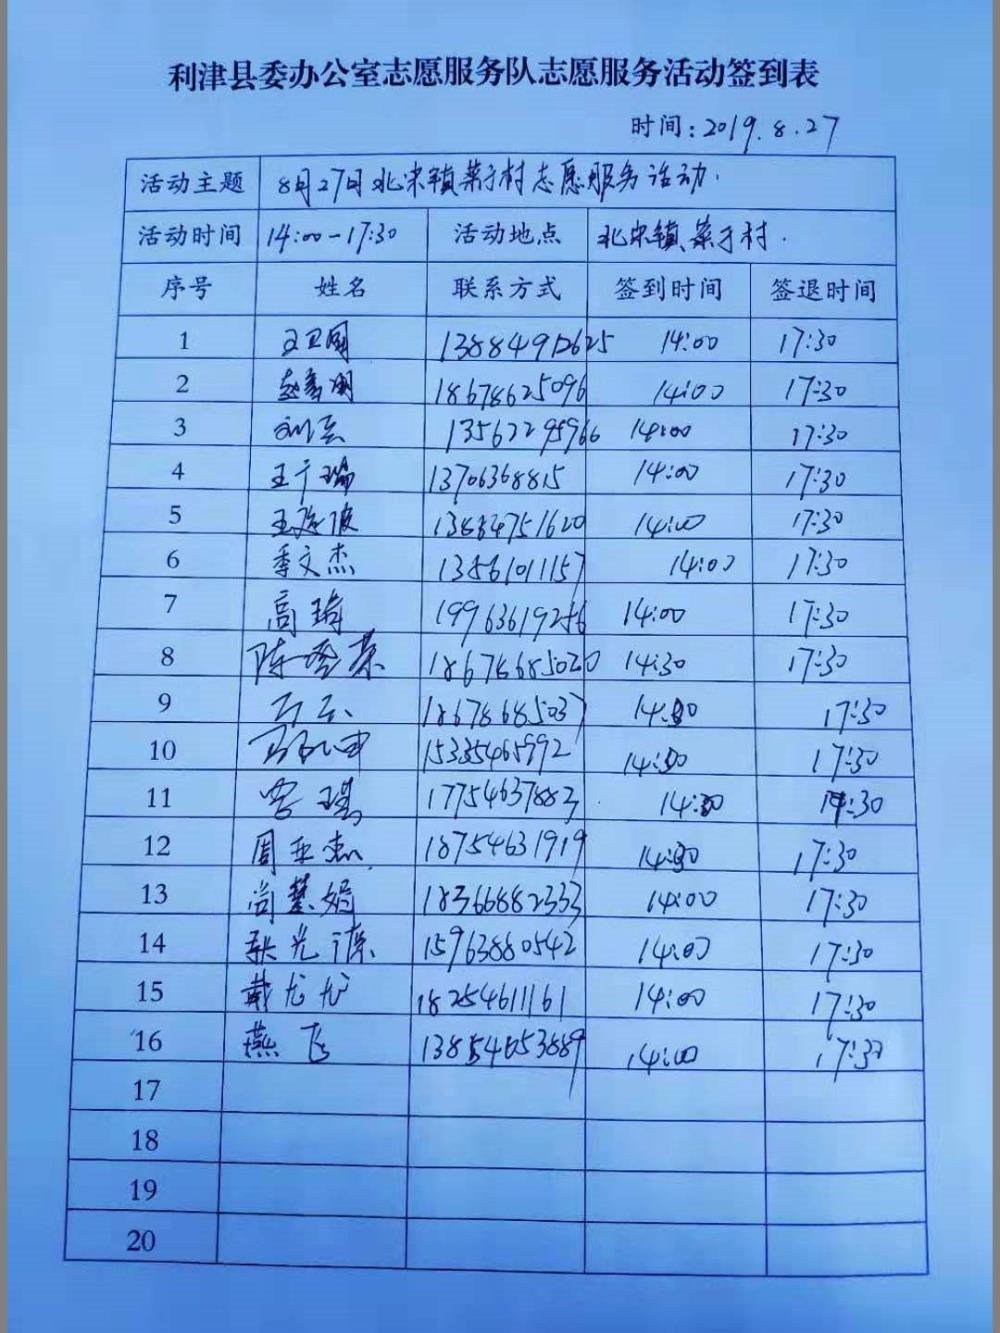 利津县委办公室志愿服务队志愿服务活动签到表
时间:2019.8.27
活动主题 8月27日北宋镇菜于村志愿服务活动.
活动时间 14:00-17:30 活动地点 北宋镇菜于村.
序号 姓名 联系方式 签到时间 签退时间
1 14:00 17:30
2 18678625096 14:00 17:30
3 13562295966 14:00 17:30
4 王千瑞 13706368815 14:00 17:30
5 13884751620 14:00 17:30
6 季文杰 13561011157 14:00 17:30
7 高琦 19963619256 14:00 17:30
8 18678685020 14:30 17:30
9 18678685037 14:30 17:30
10 15335465992 14:30 17:30
11 17754637883 14:30 17:30
12 周亚杰 18754631919 14:30 17:30
13 尚慧娟 18366882333 14:00 17:30
14 张光 15963880542 14:00 17:30
15 戴尤尤 18254611161 14:00 17:30
16 燕飞 14:00 17:30
17
18
19
20